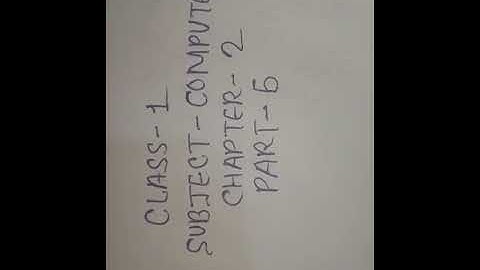 CLASS-1
SUBJECT-COMPUTE
CHAPTER-2
PART-5